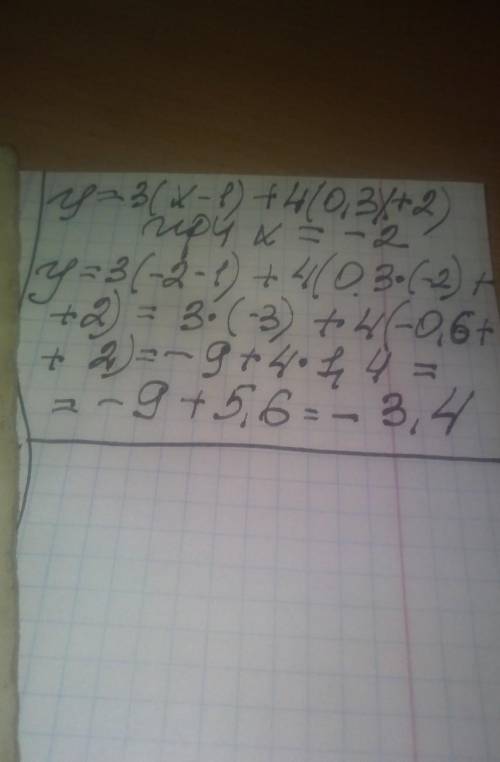 y=3(x-1)+4(0,3x+2)
при x = -2
y=3(-2-1) + 4(0.3·(-2)+
+2) = 3·(-3) + 4(-0,6+
+ 2)=-9+4·1,4 =
= -9+5,6=-3,4